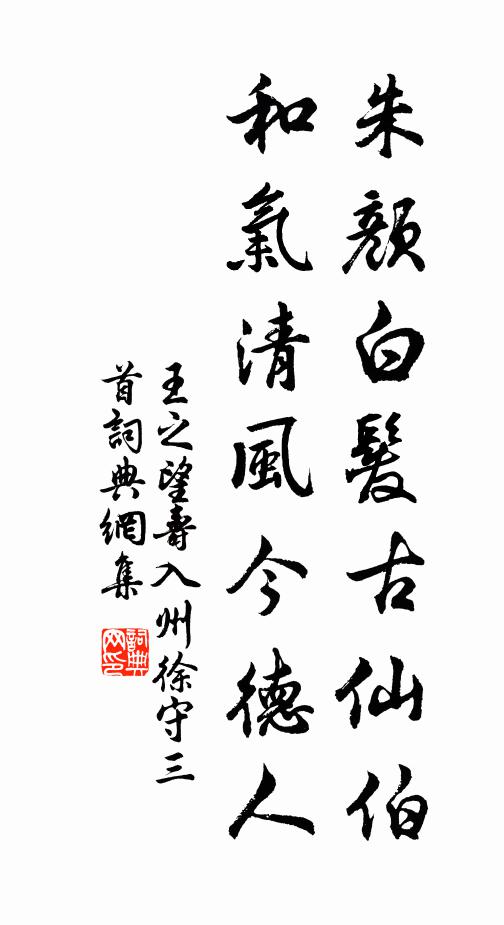 朱顏白髮古仙伯
和氣清風今德人
王之望壽入州徐守三
首詞典網集
詞典網印